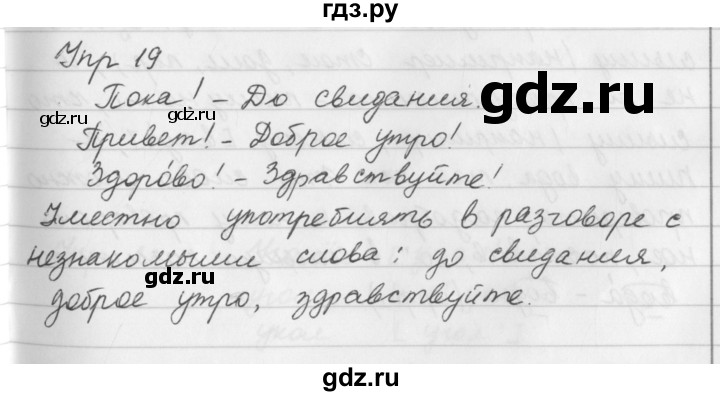 гдз.ру
Упр 19
Пока! – До свидания.
gdz.ru
gdz.ru
Привет! – Доброе утро!
gdz.ru
Здорово! – Здравствуйте!
Уместно употреблять в разговоре с
незнакомыми слова: до свидания,
gdz.ru
доброе утро, здравствуйте.
gdz.ru